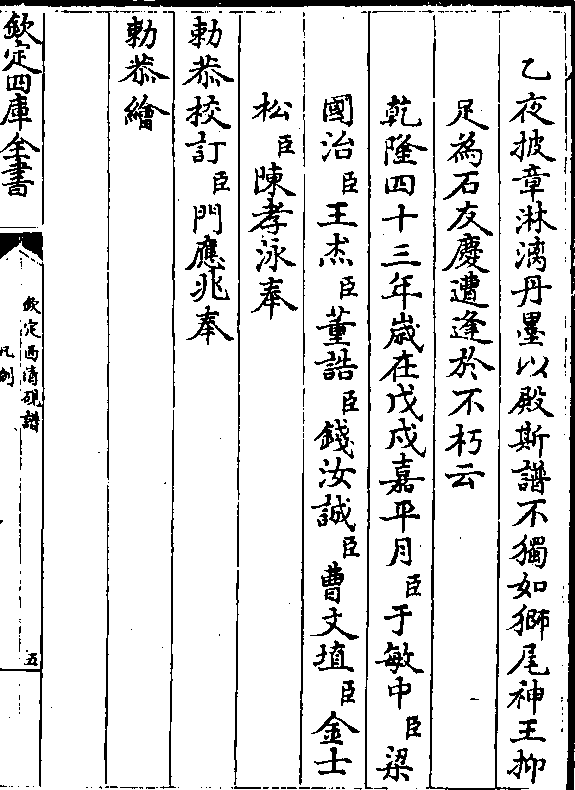 乙夜披章淋漓丹墨以殿斯譜不獨如獅尾神王抑
足為石友慶遭逢於不朽云
乾隆四十三年歲在戊戌嘉平月臣于敏中臣梁
國治臣王杰臣董誥臣錢汝誠臣曹文埴臣金士
松臣陳孝泳奉
勅恭挍訂臣門應兆奉
勅恭繪
欽定四庫全書
欽定西清硯譜
凡例
五